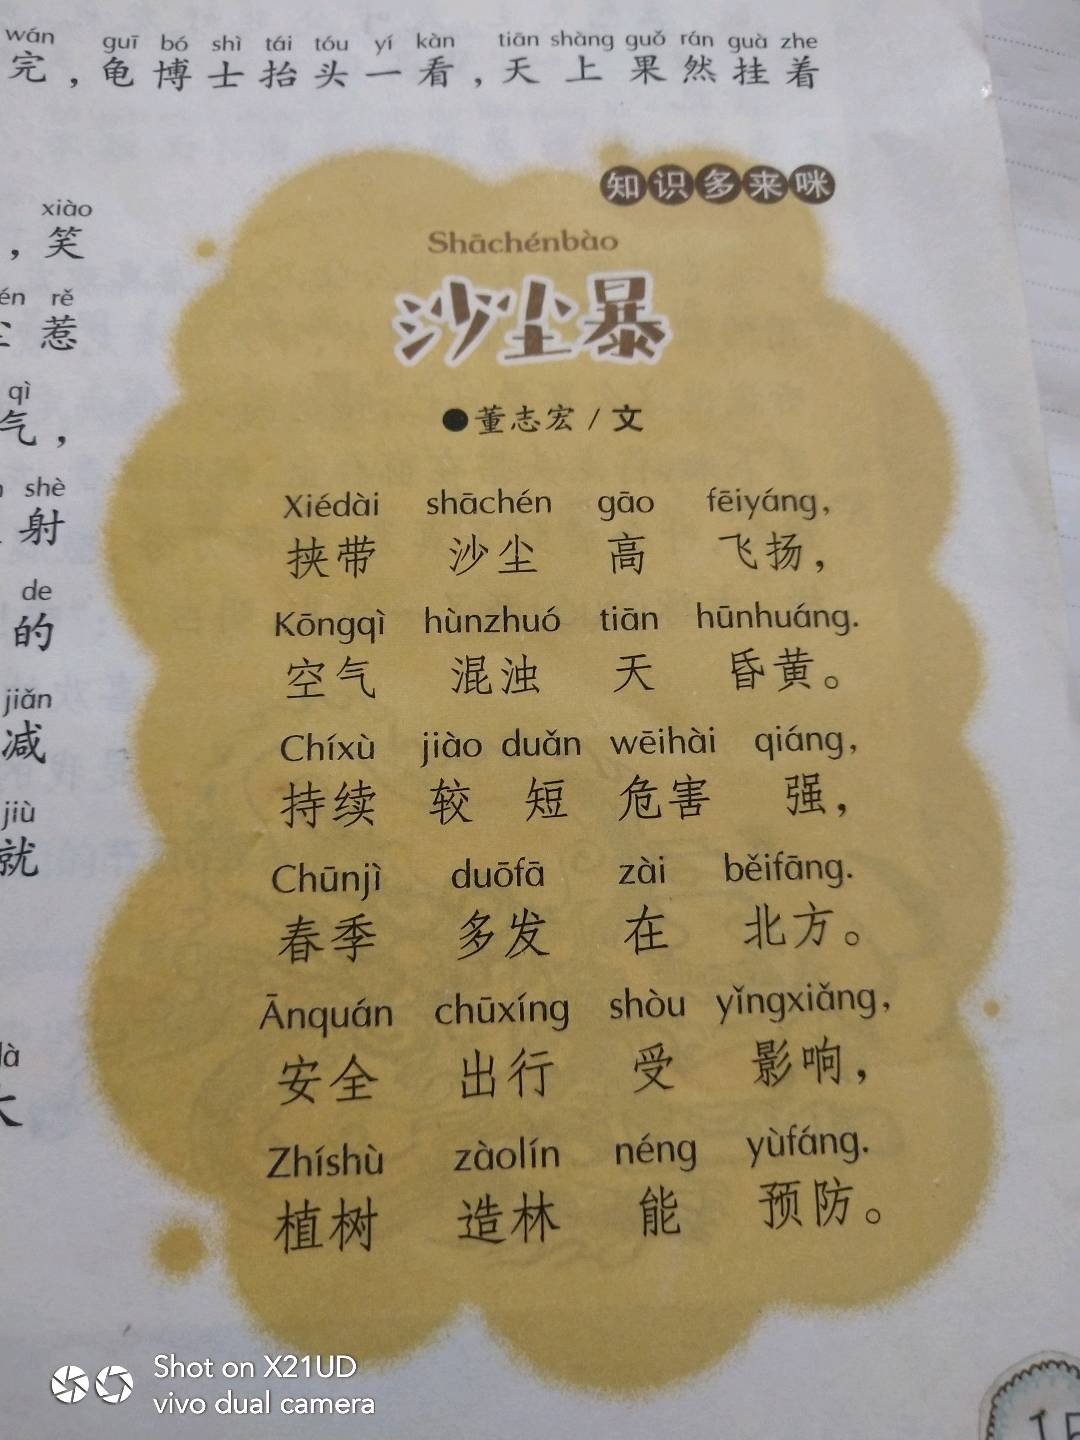 wán guī bó shì tái tóu yí kàn tiān shàng guǒ rán guà zhe
完，龟博士抬头一看，天上果然挂着
xiào
，笑
rě
惹
qì
气，
shè
射
de
的
jiǎn
减
jiù
就
知识多来咪
Shāchénbào
沙尘暴
●董志宏/文
Xiédài shāchén gāo fēiyáng,
挟带 沙尘 高 飞扬，
Kōngqì hùnzhuó tiān hūnhuáng.
空气 混浊 天 昏黄。
Chíxù jiào duǎn wēihài qiáng,
持续 较 短 危害 强，
Chūnjì duōfā zài běifāng.
春季 多发 在 北方。
Ānquán chūxíng shòu yǐngxiǎng,
安全 出行 受 影响，
Zhíshù zàolín néng yùfáng.
植树 造林 能 预防。
Shot on X21UD
vivo dual camera